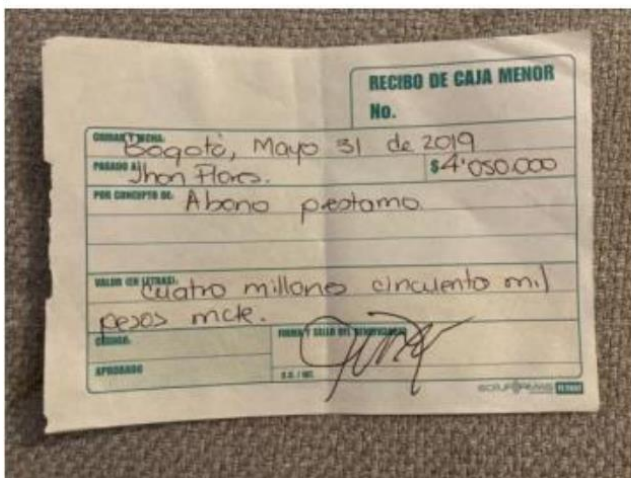 RECIBO DE CAJA MENOR
No.
CIUDAD Y FECHA:
Bogotá, Mayo 31 de 2019
PAGADO A:
Jhon Flores.
$4'050.000
POR CONCEPTO DE: Abono prestamo.
VALOR (EN LETRAS):
Cuatro millones cincuenta mil
pesos mcte.
CÓDIGO:
FIRMA Y SELLO DEL BENEFICIARIO
APROBADO
C.C. / NIT.